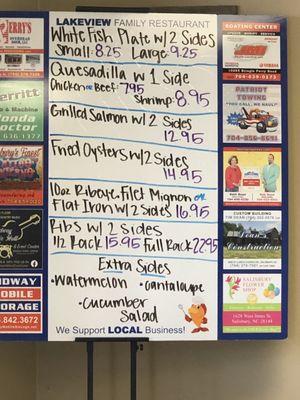 LAKEVIEW FAMILY RESTAURANT
White Fish Plate w/2 Sides
Small 8.25 Large 9.25
Quesadilla w/1 Side
Chicken or Beef 7.95
Shrimp 8.95
Grilled Salmon w/2 Sides
12.95
Fried Oysters w/2 Sides
14.95
10oz Ribeye, Filet Mignon or
Flat Iron w/2 Sides 16.95
Ribs w/2 Sides
1/2 Rack 15.95 Full Rack 22.95
Extra Sides
•Watermelon •Cantaloupe
•Cucumber
Salad
We Support LOCAL Business!
BOATING CENTER
PATRIOT
TOWING
CUSTOM BUILDING
SALISBURY
FLOWER
SHOP
1628 West Innes St.
Salisbury, NC 28144
MOBILE
STORAGE